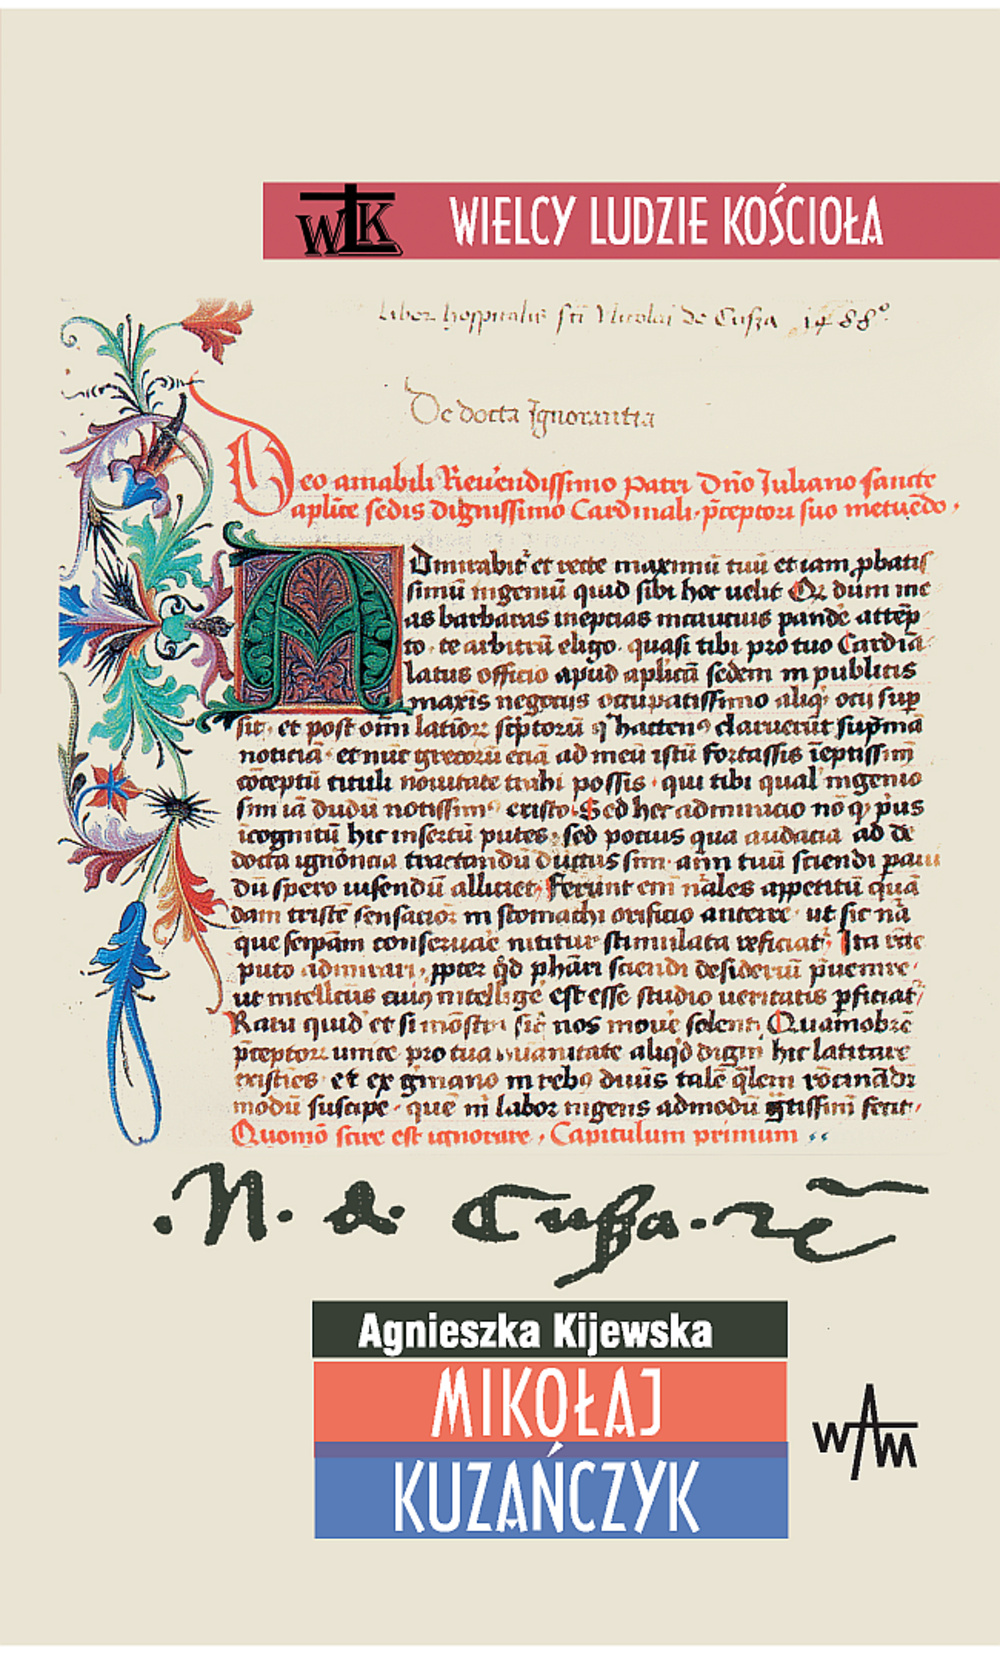 WLK WIELCY LUDZIE KOŚCIOŁA
liber hospitalis sci Nicolai de Cusza 1488º
De docta Ignorantia
Deo amabili Reuendissimo patri dño Iuliano sancte
aplice sedis dignissimo Cardinali p̄ceptori suo metuēdo
Admirabit et recte maximū tuū et iam pbatis
simū ingeniū quid sibi hoc uelit Qz dum me
as barbaras ineptias incautius pande attēp
to te arbitrū eligo quasi tibi pro tuo Cardīa
latus officio apud aplicā sedem in publicis
maxīs negocijs ocupatissimo aliqd ocij sup
sit et post om̄ latiorz scptorū q hacten9 claruerūt supmā
noticiā et nūc grecorū eciā ad meū istū fortassis īeptissim
cōceptū tituli nouitate trahi possis qui tibi qual ingenio
sim iā dudū notissim9 existo Sed hec admiracio nō q p̄us
īcognitū hic insertū putes sed pocius qua audacia ad de
docta ignōncia tractandū ductus sim aīm tuū sciendi
dū spero uisendū alliciet Ferunt em̄ nāles appetitū quā
dam tristē sensacioz in stomachi orificio anteire ut sic nā
que seipām conseruare nititur stimulata reficiat Ita recte
puto admirari ppter qd phāri sciendi desideriū p̄uenire
ut intellcūs cui9 intellige est esse studio ueritatis pficiat
Rara quid et si mōstra sīt nos moue solent Quamobrē
p̄ceptorz unice pro tua humanitate aliqd digni hic latitare
existīes et ex gmano in reb9 diuīs talē qlem rōcinādi
modū suscipe quē m labor ingens admodū gtissim̄ fecit
Quomō scire est ignorare Capitulum primum
.N. de Cusza.
Agnieszka Kijewska
MIKOŁAJ
KUZAŃCZYK
WAM